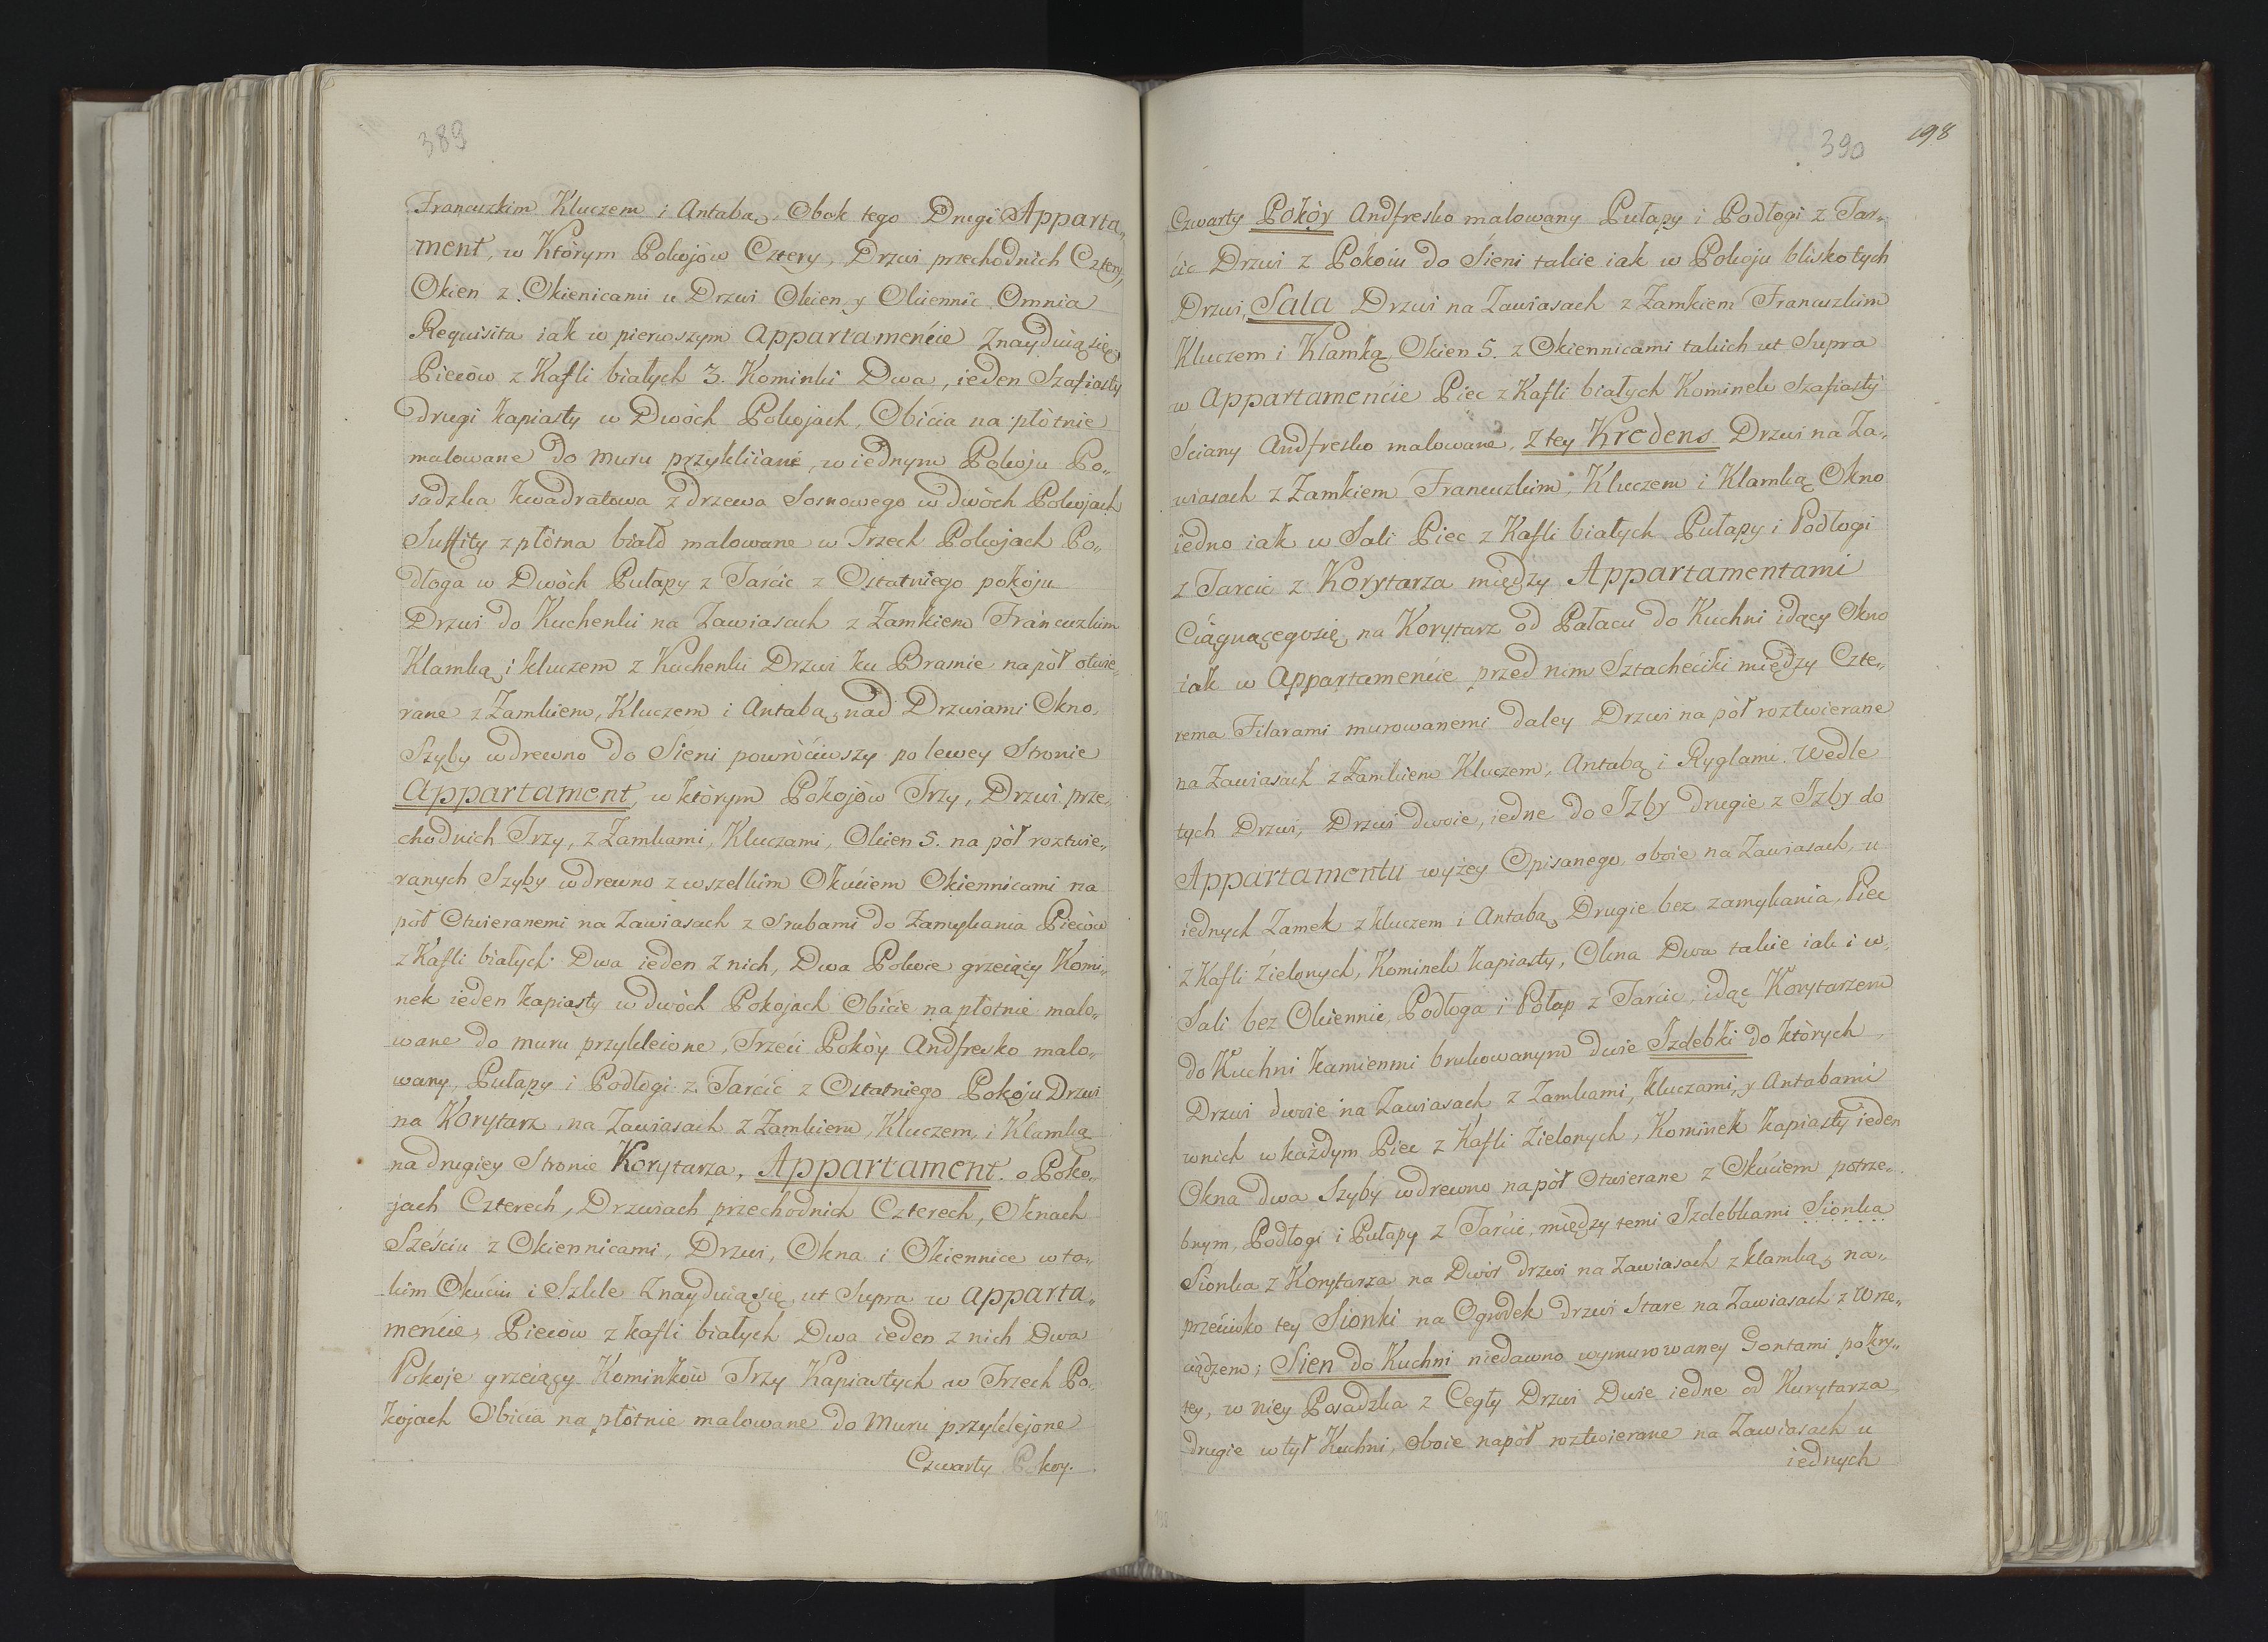 389
Francuzkim Kluczem i Antabą, Obok tego Drugi Apparta„
ment, w Którym Pokojów Cztery, Drzwi przechodnich Cztery,
Okien z Okienicami u Drzwi Okien y Okiennic Omnia
Requisita iak w pierwszym Appartamencie Znayduią się,
Pieców z Kafli białych 3. Kominki Dwa, ieden Szafiasty
drugi kapiasty w Dwóch Pokojach, Obicia na płótnie
malowane do muru przykliiané, w iednym Pokoju Po„
sadzka kwadratowa z drzewa Sosnowego w dwóch Pokojach
Suffity z płótna biało malowane w Trzech Pokojach Po„
dłoga w Dwóch Pułapy z Tarcic z Ostatniego pokoju
Drzwi do Kuchenki na Zawiasach z Zamkiem Francuzkim
Klamką i kluczem z Kuchenki Drzwi ku Bramie na pół otwie„
rane z Zamkiem, Kluczem i Antabą, nad Drzwiami Okno,
Szyby w drewno do Sieni powróciwszy po lewey Stronie
Appartament, w którym Pokojów Trzy, Drzwi prze„
chodnich Trzy, z Zamkami, Kluczami, Okien 5. na pół roztwie„
ranych Szyby w drewno z wszelkim Okuciem Okiennicami na
pół Otwieranemi na Zawiasach z Srubami do Zamykania Pieców
z Kafli białych Dwa ieden z nich, Dwa Pokoie grzeiący Komi„
nek ieden kapiasty w dwóch Pokojach Obicie na płótnie malo„
wane do muru przykleione, Trzeci Pokóy Andfresko malo„
wany, Pułapy i Podłogi z Tarcic z Ostatniego Pokoju Drzwi
na Korytarz, na Zawiasach z Zamkiem, Kluczem, i Klamką
na drugiey Stronie Korytarza, Appartament o Poko„
jach Czterech, Drzwiach przechodnich Czterech, Oknach
Sześciu z Okiennicami, Drzwi, Okna i Okiennice w ta„
kim Okuciu i Szkle Znayduią się, ut Supra w apparta„
mencie, Pieców z kafli białych Dwa ieden z nich Dwa
Pokoje grzeiący Kominków Trzy Kapiastych w Trzech Po„
kojach Obicia na płótnie malowane do Muru przyklejone
Czwarty Pokoy.
390
198
Czwarty Pokóy Andfresko malowany Pułapy i Podłogi z Tar„
cic Drzwi z Pokoiu do Sieni takie iak w Pokoju blisko tych
Drzwi, Sala Drzwi na Zawiasach z Zamkiem Francuzkim
Kluczem i Klamką, Okien 5. z Okiennicami takich ut Supra
w Appartamencie Piec z Kafli białych Kominek Szafiasty
Ściany Andfresko malowane, z tey Kredens Drzwi na Za„
wiasach z Zamkiem Francuzkim, Kluczem i Klamką Okno
iedno iak w Sali Piec z Kafli białych Pułapy i Podłogi
z Tarcic z Korytarza między Appartamentami
Ciągnącego się, na Korytarz od Pałacu do Kuchni idący Okno
iak w Appartamencie przed nim Sztachećiki między Czte„
rema Filarami murowanemi daley Drzwi na pół roztwierane
na Zawiasach z Zamkiem Kluczem, Antabą i Ryglami. Wedle
tych Drzwi, Drzwi dwoie, iedne do Izby drugie z Izby do
Appartamentu wyżey Opisanego, oboie na Zawiasach, u
iednych Zamek z kluczem i Antabą, Drugie bez zamykania, Piec
z Kafli Zielonych, Kominek kapiasty, Okna Dwa takie iak i w
Sali bez Okiennic, Podłoga i Połap z Tarcic, idąc Korytarzem
do Kuchni kamienmi brukowanym dwie Izdebki do których
Drzwi dwoie na Zawiasach z Zamkami, kluczami, y Antabami
w nich w każdym Piec z Kafli Zielonych, Kominek kapiasty ieden
Okna dwa Szyby w drewno na pół Otwierane z Okuciem potrze„
bnym, Podłogi i Pułapy z Tarcic, między temi Izdebkami Sionka
Sionka z Korytarza na Dwór drzwi na Zawiasach z klamką, na„
przeciwko tey Sionki na Ogródek drzwi Stare na Zawiasach z Wrze„
ciądzem; Sien do Kuchni niedawno wymurowaney Gontami pokry„
tey, w niey Posadzka z Cegły Drzwi Dwie iedne od Kurytarza,
drugie w tył Kuchni, oboie na pół roztwierane na Zawiasach u
iednych